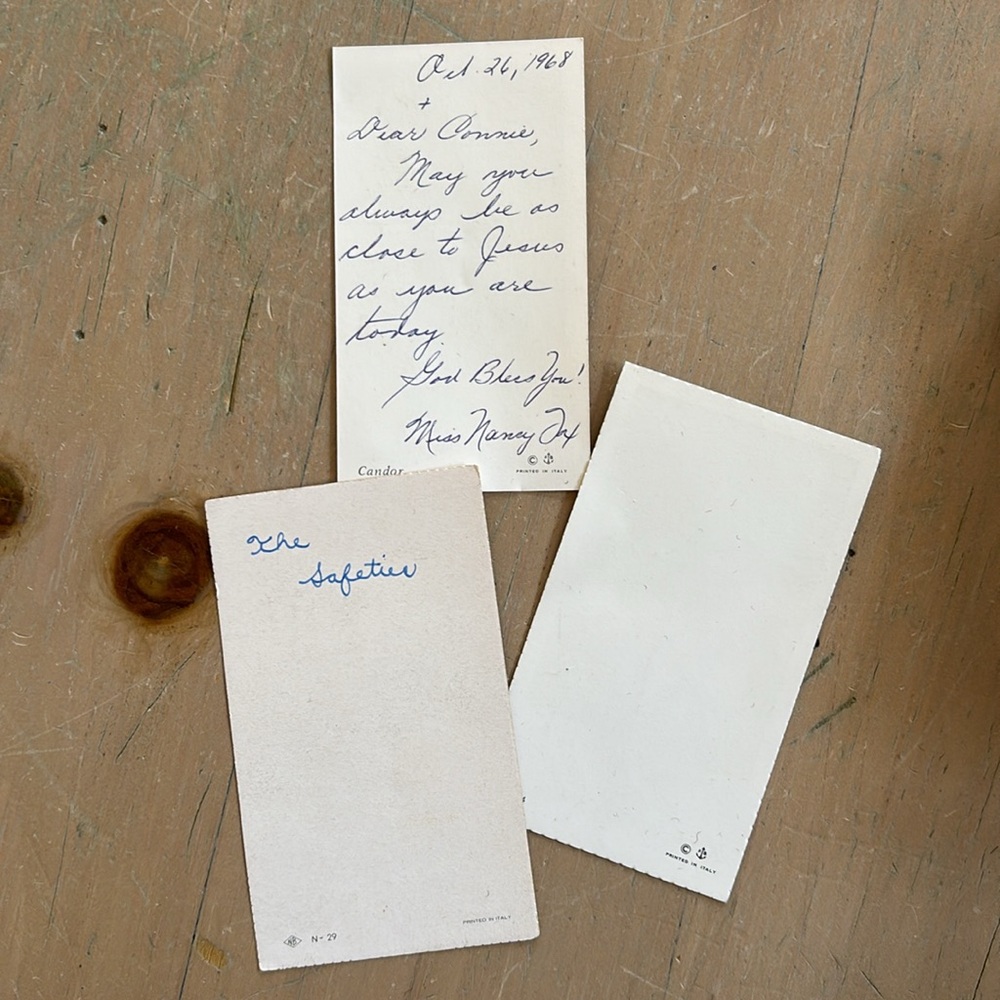 Oct. 26, 1968
+
Dear Connie,
May you
always be as
close to Jesus
as you are
today.
God Bless You!
Miss Nancy Fox
Candor
© PRINTED IN ITALY
The
Safeties
NB N-29
PRINTED IN ITALY
©
PRINTED IN ITALY